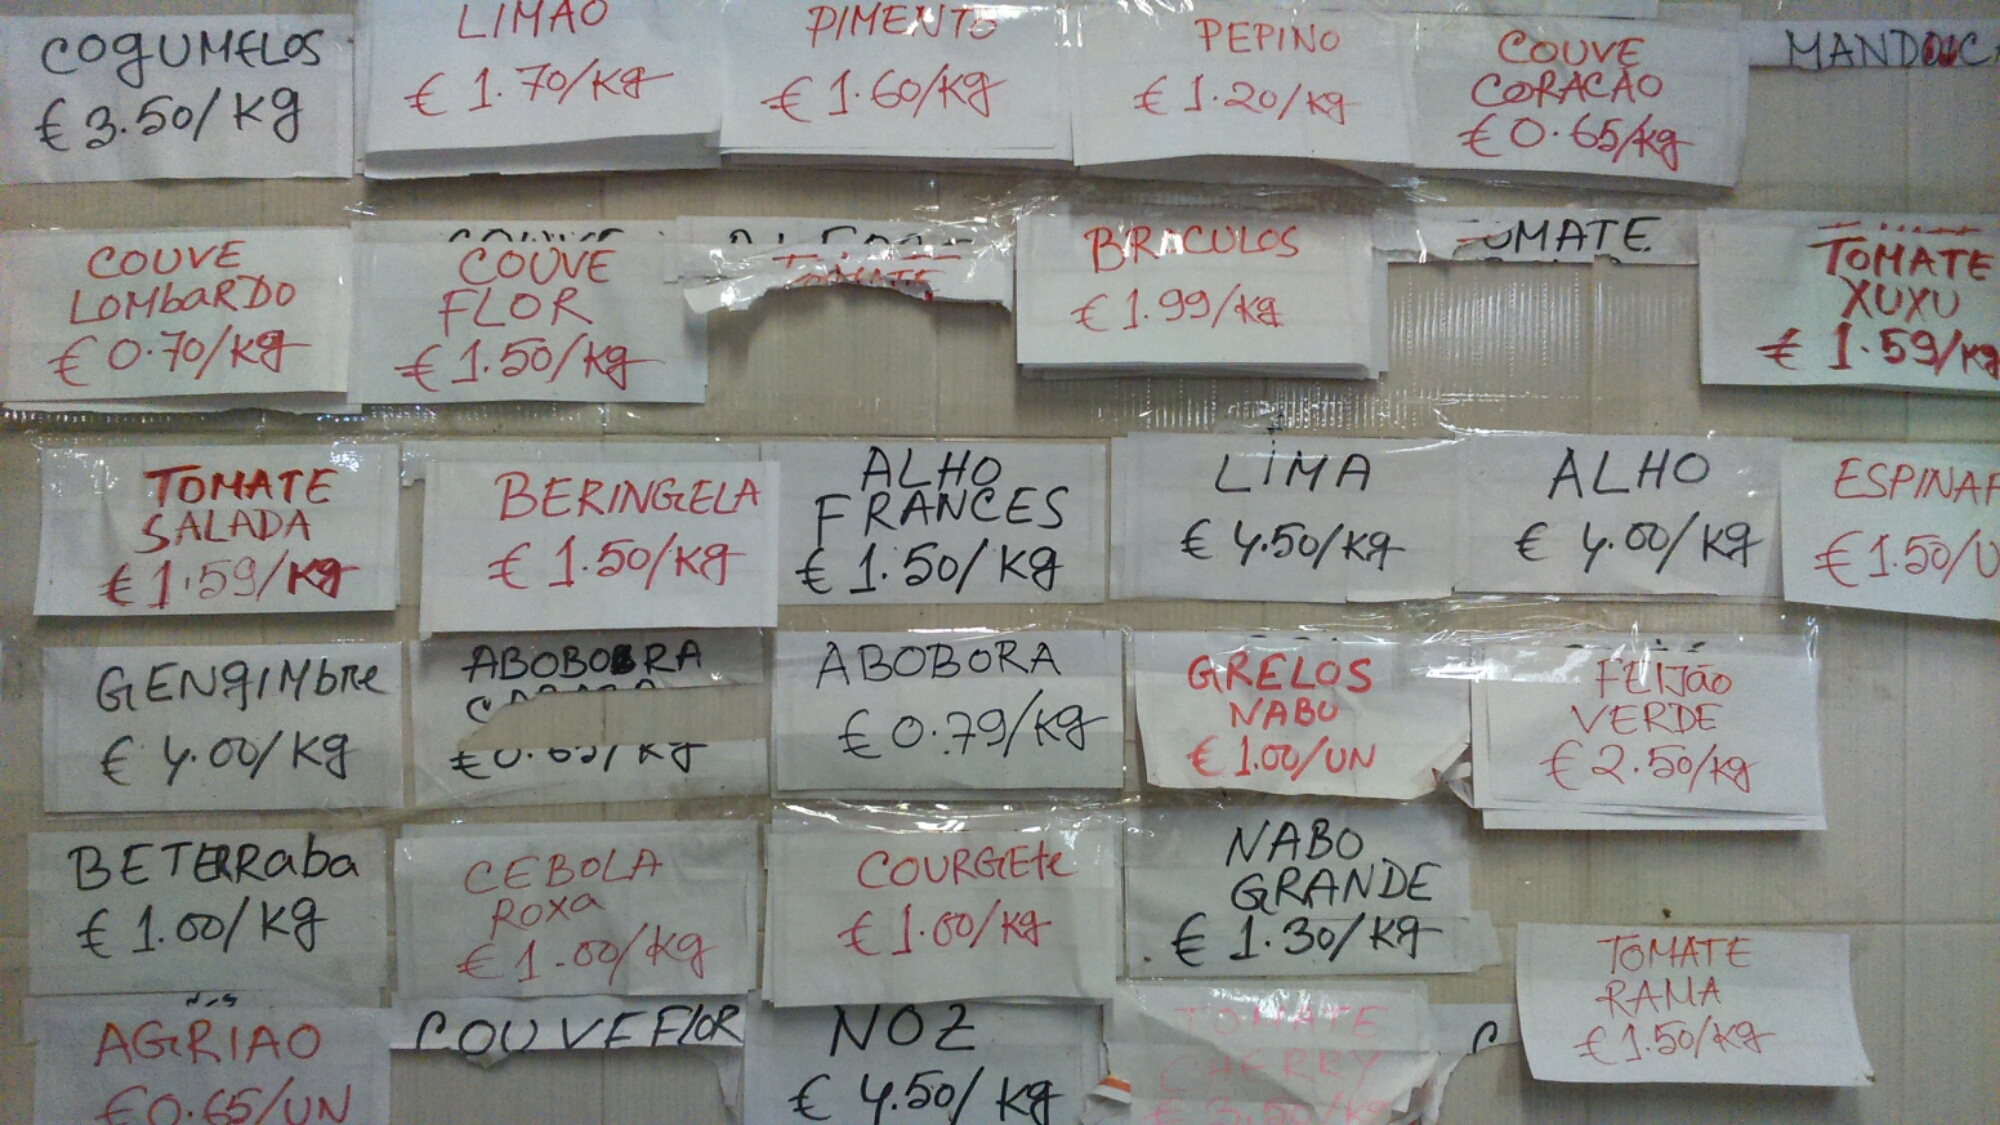 COGUMELOS
€ 3.50/Kg
LIMÃO
€ 1.70/Kg
PIMENTO
€ 1.60/Kg
PEPINO
€ 1.20/Kg
COUVE
CORACÃO
€ 0.65/Kg
COUVE
LOMbaRDO
€ 0.70/Kg
COUVE
COUVE
FLOR
€ 1.50/Kg
TOMATE
BROCULOS
€ 1.99/Kg
TOMATE
TOMATE
XUXU
€ 1.59/Kg
TOMATE
SALADA
€ 1.59/Kg
BERINGELA
€ 1.50/Kg
ALHO
FRANCES
€ 1.50/Kg
LIMA
€ 4.50/Kg
ALHO
€ 4.00/Kg
€ 1.50/U
GENgIMbRe
€ 4.00/Kg
ABOBOBRA
ABOBORA
€ 0.79/Kg
GRELOS
NABO
€ 1.00/UN
FEIJão
VERDE
€ 2.50/Kg
BETERRaba
€ 1.00/Kg
CEBOLA
ROXa
€ 1.00/Kg
COURGEte
€ 1.00/Kg
NABO
GRANDE
€ 1.30/Kg
TOMATE
RAMA
€ 1.50/Kg
AGRIAO
€ 0.65/UN
COUVE FLOR
NOZ
€ 4.50/Kg
TOMATE
CHERRY
€ 3.50/Kg